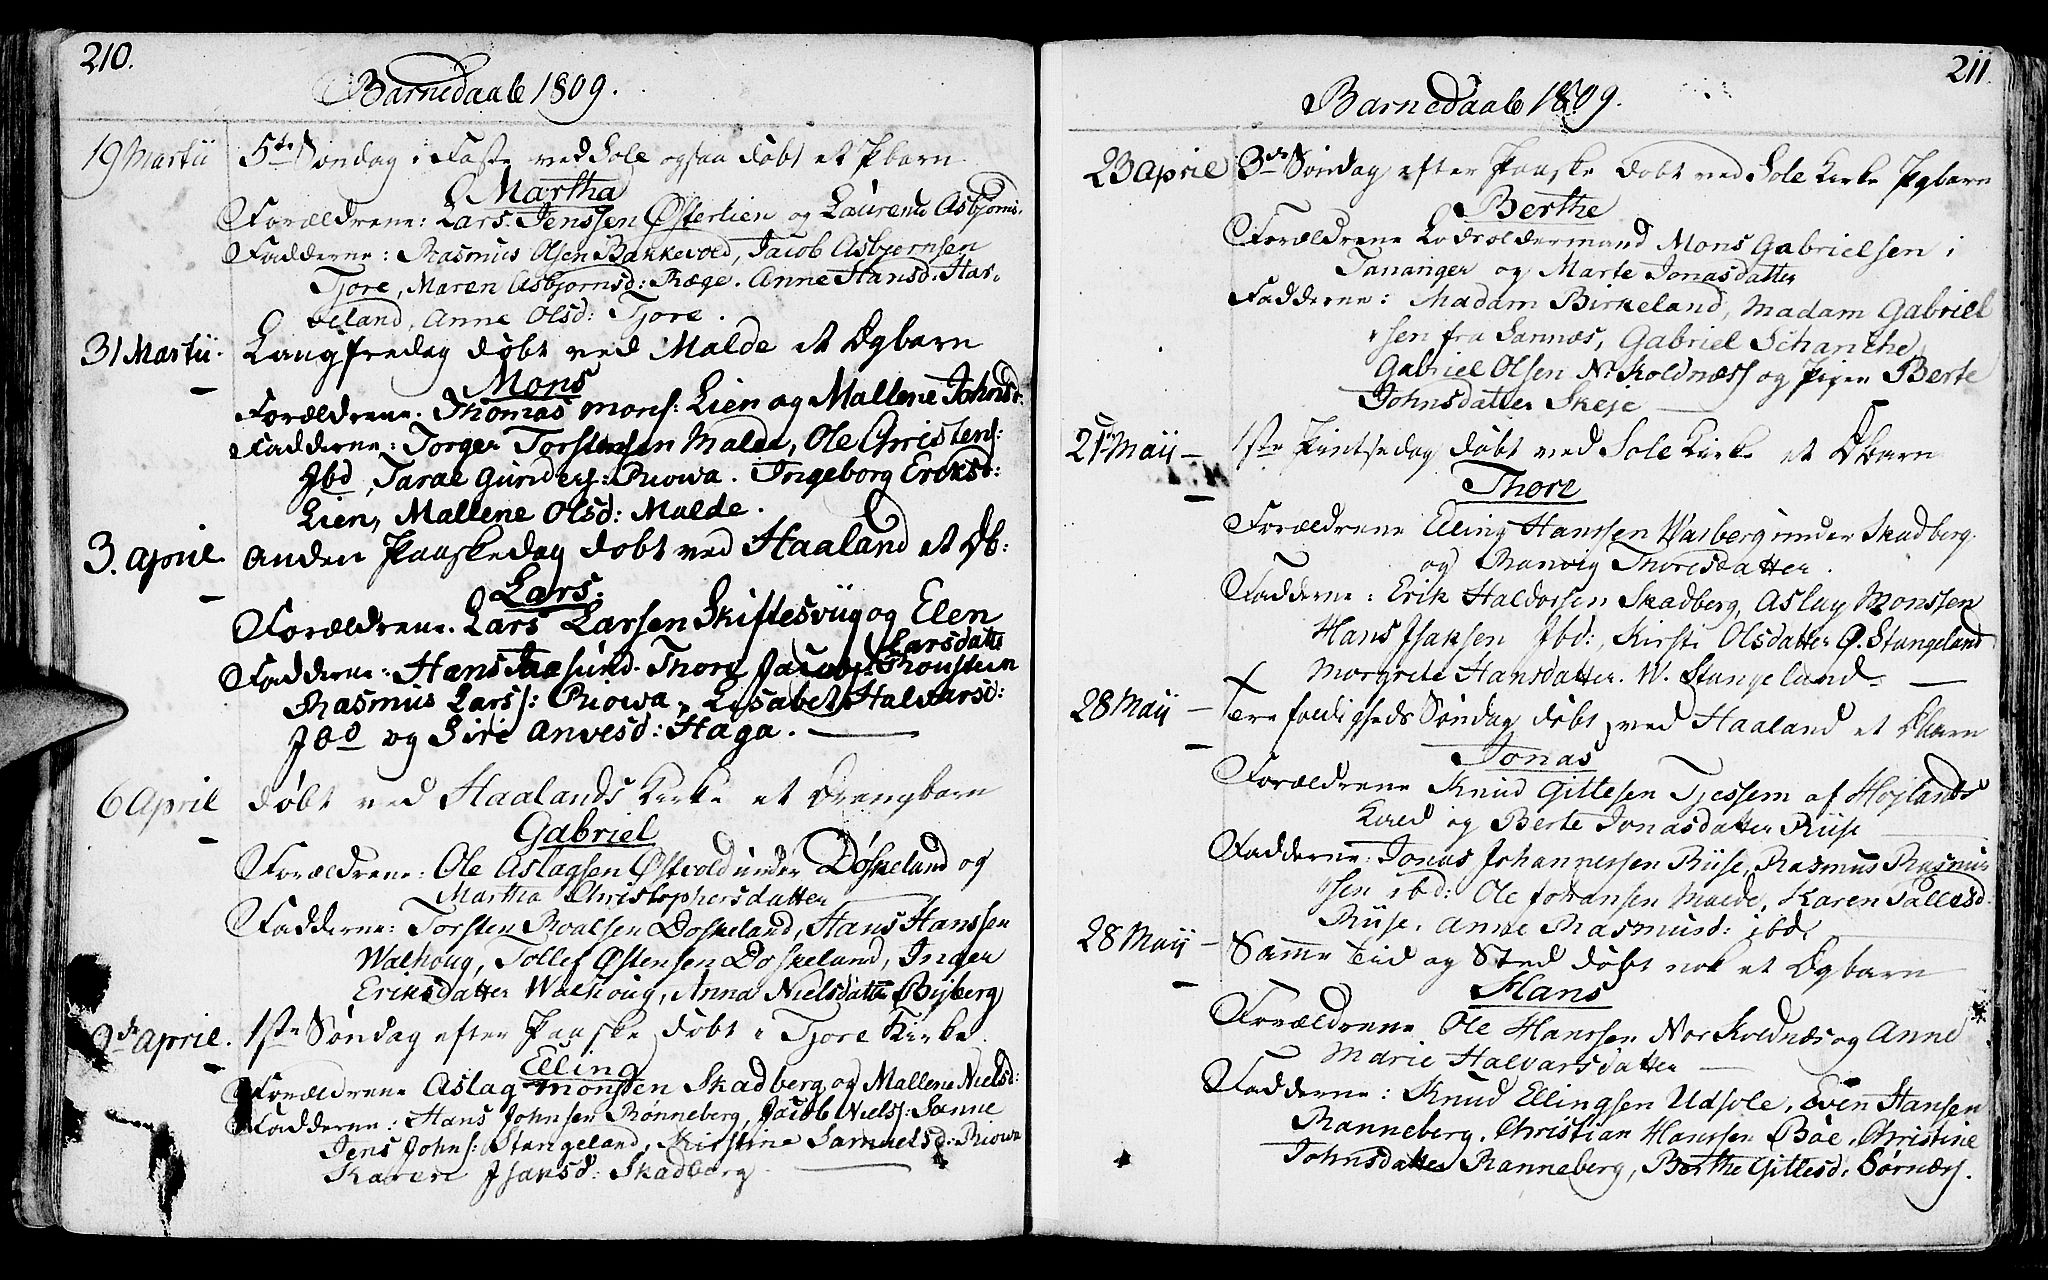 210.
Barnedaab 1809.
19 Martii 5te Søndag i Faste ved Sole ogsaa døbt et Pbarn
Martha
Forældrene: Lars Jenssen Østerlien og Laurence Asbjørns.
Fadderne: Rasmus Olsen Bakkevold, Jacob Asbjørnsen
Tjore, Maren Asbjornsd: Ræge. Anne Hansd: Has-
veland, Anne Olsd: Tjore.
31 Martii. Langfredag døbt ved Malde et Dgbarn
Mons
Forældrene. Thomas Mons: Lien og Mallene Johnsd:
Fadderne: Torger Torstensen Malde, Ole Christens:
Ibd, Taral Gunders: Riowa. Ingeborg Eriksd:
Lien, Mallene Olsd: Malde.
3. April Anden Paaskedag døbt ved Haaland et Db:
Lars.
Forældrene. Lars Larsen Skiftesviig og Elen
Larsdatter
Fadderne: Hans Thore Jacobs:
Rasmus Larss: Riowa, Lisabet Halvarsd:
Ibd og Siri Anvesd: Haga.
6 April døbt ved Haalands Kirke et Drengbarn
Gabriel
Forældrene: Ole Aslagsen Østvold under Døskeland og
Martha Christophersdatter
Fadderne: Torsten Roalsen Doskeland, Hans Hanssen
Walhoug, Tollef Østensen Doskeland, Inger
Eriksdatter Walhoug, Anna Nielsdatter Byberg
9de April. 1ste Søndag efter Paaske døbt i Tjore Kirke
Elling
Forældrene Aslag Monssen Skadberg og Mallene Nielsd:
Fadderne: Hans Johnsen Rønneberg, Jacob Niels: Sanne
Jens Johns: Stangeland, Kirstine Samuelsd: Riowa
Karen Isaksd: Skadberg
211.
Barnedaab 1809.
23 April 3de Søndag efter Paaske døbt ved Sole Kirke Pgbarn
Berthe
Forældrene Lodsoldermand Mons Gabrielsen i
Tananger og Marte Jonasdatter
Fadderne: Madam Birkeland, Madam Gabriel
sen fra Sannæs, Gabriel Schanche,
Gabriel Olsen N: Koldnæss og Pigen Berte
Johnsdatter Skeje
21 Maij 1ste Pintsedag døbt ved Sole Kirke et Dbarn
Thore
Forældrene Elling Hanssen Warberg under Skadberg.
og Ranvig Thoresdatter.
Fadderne: Erik Haldorsen Skadberg, Aslag Monssen
Hans Isaksen Ibd:, Kirsti Olsdatter Ø. Stangeland
Morgrete Hansdatter. W. Stangeland.
28 Maij Trefoldigheds Søndag døbt ved Haaland et Dbarn
Jonas
Forældrene Knud Gittesen Tjessem af Højlands
Kald og Berte Jonasdatter Riise
Fadderne: Jonas Johannessen Riise, Rasmus Rasmus
sen ibd: Ole Johansen Malde, Karen Pallesd:
Riise, Anne Rasmusd: ibd.
28 Maij Samme Tid og Sted døbt nok et Dgbarn
Hans
Forældrene Ole Hanssen Nor Kolnæs og Anne
Marie Halvarsdatter
Fadderne: Knud Ellingsen Udsole, Even Hansen
Ranneberg. Christian Hanssen Bøe. Christine
Johnsdatter Ranneberg, Berthe Gittesd: Sørnæs.